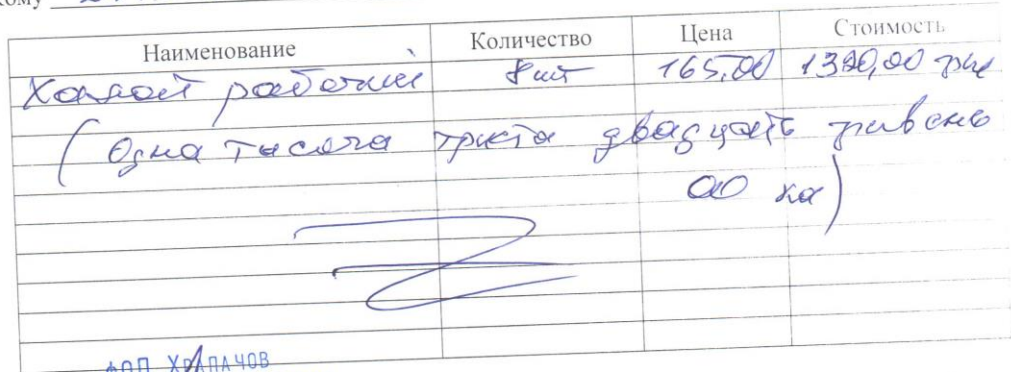 кому
Наименование Количество Цена Стоимость
Халат рабочий 8 шт 165,00 1320,00 грн
(Одна тысяча триста двадцать гривень
00 ко)
ФОП ХРАПАЧОВ